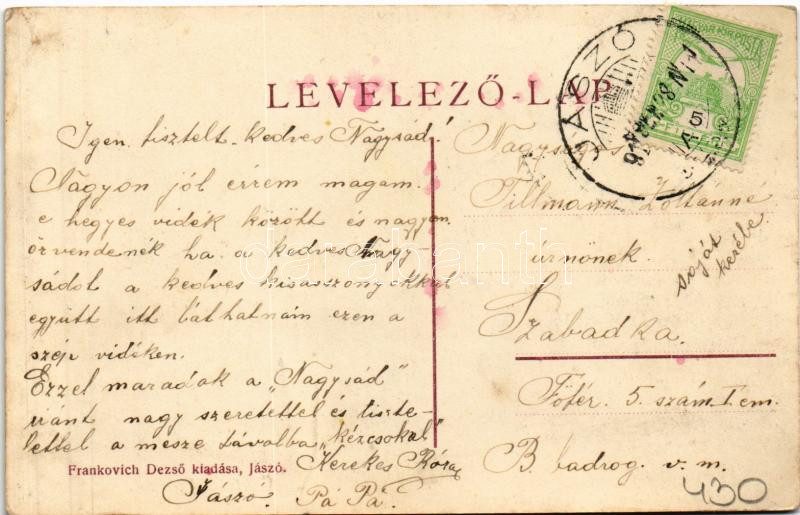 LEVELEZŐ-LAP
Igen tisztelt kedves Nagysád!
Nagyon jól érzem magam
e hegyes vidék között és nagyon
örvendenék ha a kedves Nagy-
sádat a kedves kisasszonyokkal
együtt itt láthatnám ezen a
szép vidéken.
Ezzel maradok a "Nagysád"
iránt nagy szeretettel és tiszte-
lettel a messze távolba "kézcsokal"
Kerekes Róza
Jászó. Pá Pá.
Frankovich Dezső kiadása, Jászó.
Nagyságos
Tillmann Zoltánné
úrnőnek
saját
kezébe
Szabadka.
Főtér. 5. szám I em.
B. badrog. v. m.
430
JÁSZÓ
MAGYAR KIR. POSTA
5
carsbanth